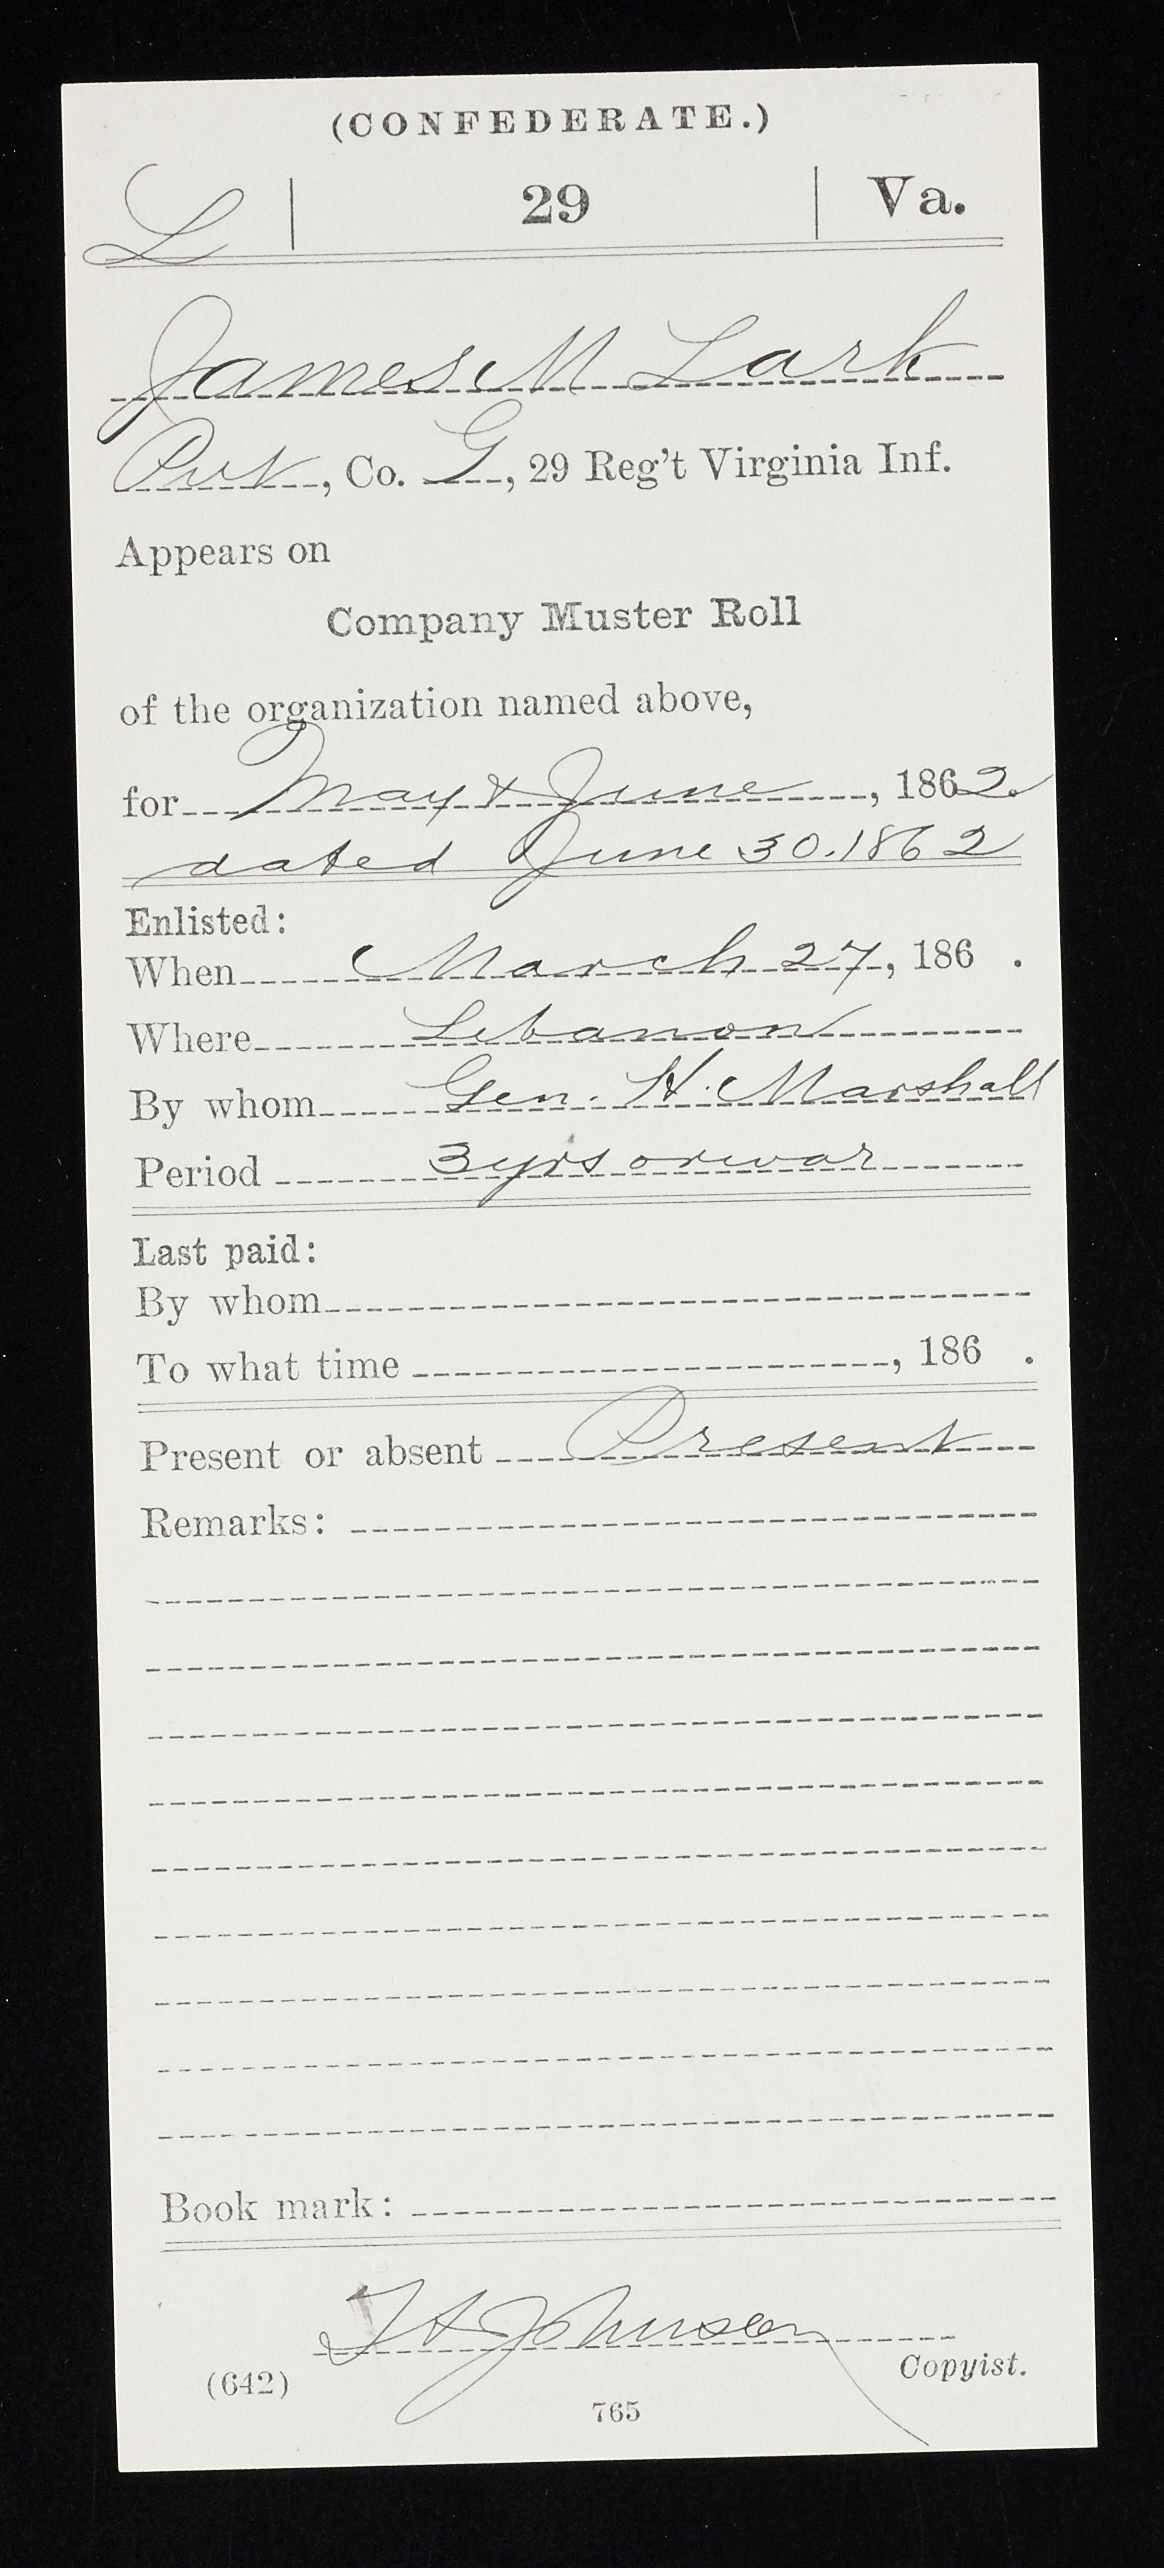 (CONFEDERATE.)
L | 29 | Va.
James M Lark
Pvt, Co. G, 29 Reg't Virginia Inf.
Appears on
Company Muster Roll
of the organization named above,
for May & June, 1862.
dated June 30. 1862
Enlisted:
When March 27, 186 .
Where Lebanon
By whom Gen. H. Marshall
Period 3 yrs or war
Last paid:
By whom
To what time , 186 .
Present or absent Present
Remarks:
Book mark:
Johnson
(642) Copyist.
765